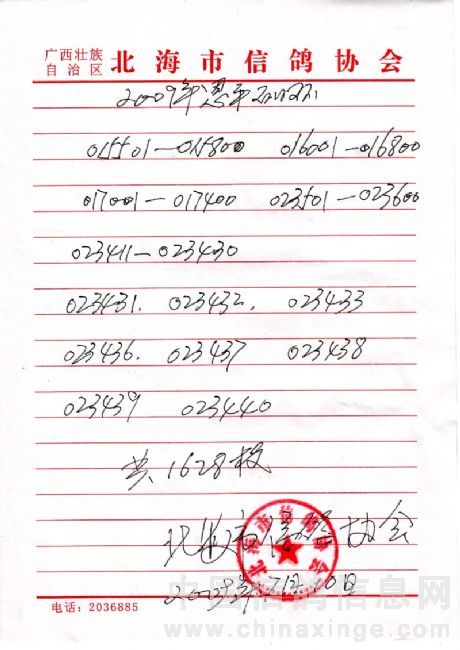 广西壮族
自治区
北海市信鸽协会
2009年
015501—015800 016001—016800
017001—017400 023501—023600
023411—023430
023431. 023432. 023433
023436. 023437 023438
023439 023440
共1628枚
北海市信鸽协会
北海市信鸽协会
10日
中国信鸽信息网
电话：2036885
www.chinaxinge.com